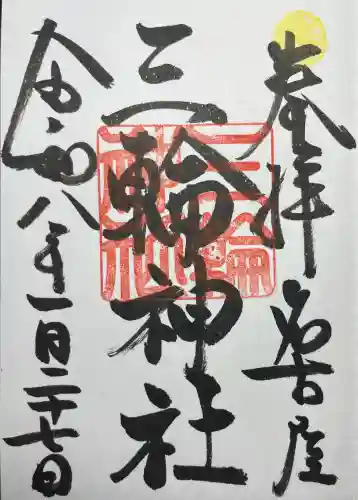 奉拝 名古屋
三輪神社
令和八年一月二十七日